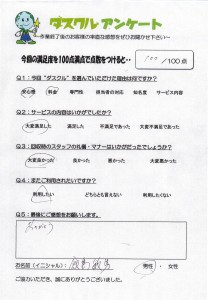 ダスクルアンケート
～作業終了後のお客様の率直な感想をぜひお聞かせ下さい～
今回の満足度を100点満点で点数をつけると・・ 100 /100点
Q1：今回“ダスクル”を選んでいただけた理由は何ですか？
安心感 料金 専門性 担当者の対応 知名度 サービス内容
Q2：サービスの内容はいかがでしたか？
大変満足した 満足した 不満足であった 大変不満足であった
Q3：回収時のスタッフの礼儀・マナーはいかがだったでしょうか？
大変良かった 良かった 悪かった 大変悪かった
Q4：またご利用されたいですか？
利用したい どちらとも言えない 利用したくない
Q5：最後にご感想をお願いします。
お名前（イニシャル）：
男性 ・ 女性
ご協力いただき、誠にありがとうございました。